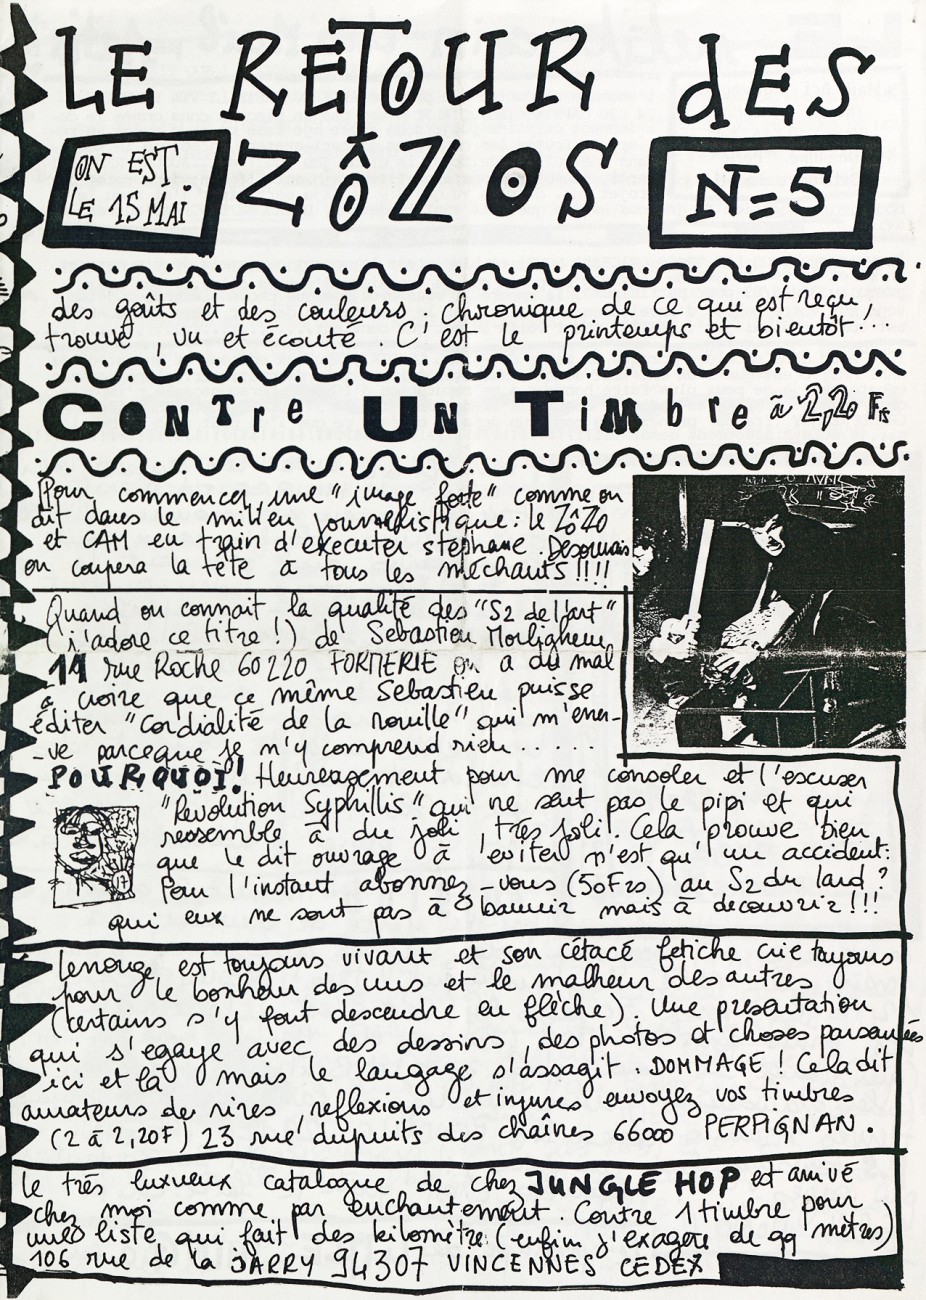 LE RETOUR des
ON EST.
LE 15 MAI
ZÔZOS
N=5
des goûts et des couleurs. Chronique de ce qui est reçu,
trouvé, vu et écouté. C'est le printemps et bientôt...
CONTre UN TiMbre à 2,20 Frs
Pour commencer, une "image forte" comme on
dit dans le milieu journalistique: le ZôZo
et CAM en train d'executer stephane. Desormais
on coupera la tête à tous les méchants!!!!
Quand on connait la qualité des "S2 de l'art"
(j'adore ce titre!) de Sebastien Morlighem
11 rue Roche 60220 FORMERIE on a du mal
à croire que ce même Sebastien puisse
éditer "Cordialité de la rouille" qui m'éner-
-ve parceque je n'y comprend rien.....
POURQUOI! Heureusement pour me consoler et l'escuser
"Revolution Syphillis" qui ne sent pas le pipi et qui
ressemble à du joli, très joli. Cela prouve bien
que le dit ouvrage à éviter n'est qu'un accident:
Pour l'instant abonnez-vous (50Frs) au S2 du lard?
qui eux ne sont pas à bannir mais à decouvrir!!!
Lenorge est toujours vivant et son cétacé fetiche crie toujours
pour le bonheur des uns et le malheur des autres
(certains s'y font descendre en flèche). Une presentation
qui s'egaye avec des dessins, des photos et choses parsemées
ici et là mais le langage s'assagit. DOMMAGE! Cela dit
amateurs de rires, reflexions et injures envoyez vos timbres
(2 à 2,20F) 23 rue du puits des chaînes 66000 PERPIGNAN.
le très luxueux catalogue de chez JUNGLE HOP est arrivé
chez moi comme par enchantement. Contre 1 timbre pour
une liste qui fait des kilomètre (enfin j'exagère de 99 mètres)
106 rue de la JARRY 94307 VINCENNES CEDEX